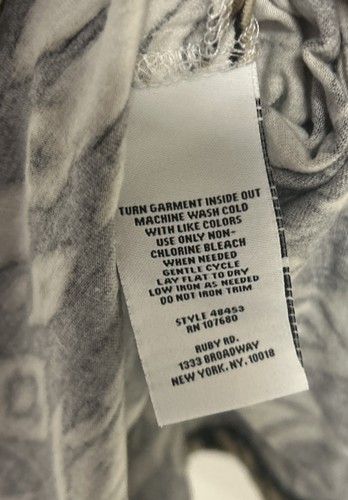 TURN GARMENT INSIDE OUT
MACHINE WASH COLD
WITH LIKE COLORS
USE ONLY NON-
CHLORINE BLEACH
WHEN NEEDED
GENTLE CYCLE
LAY FLAT TO DRY
LOW IRON AS NEEDED
DO NOT IRON TRIM
STYLE 48453
RN 107680
RUBY RD.
1333 BROADWAY
NEW YORK, NY, 10018